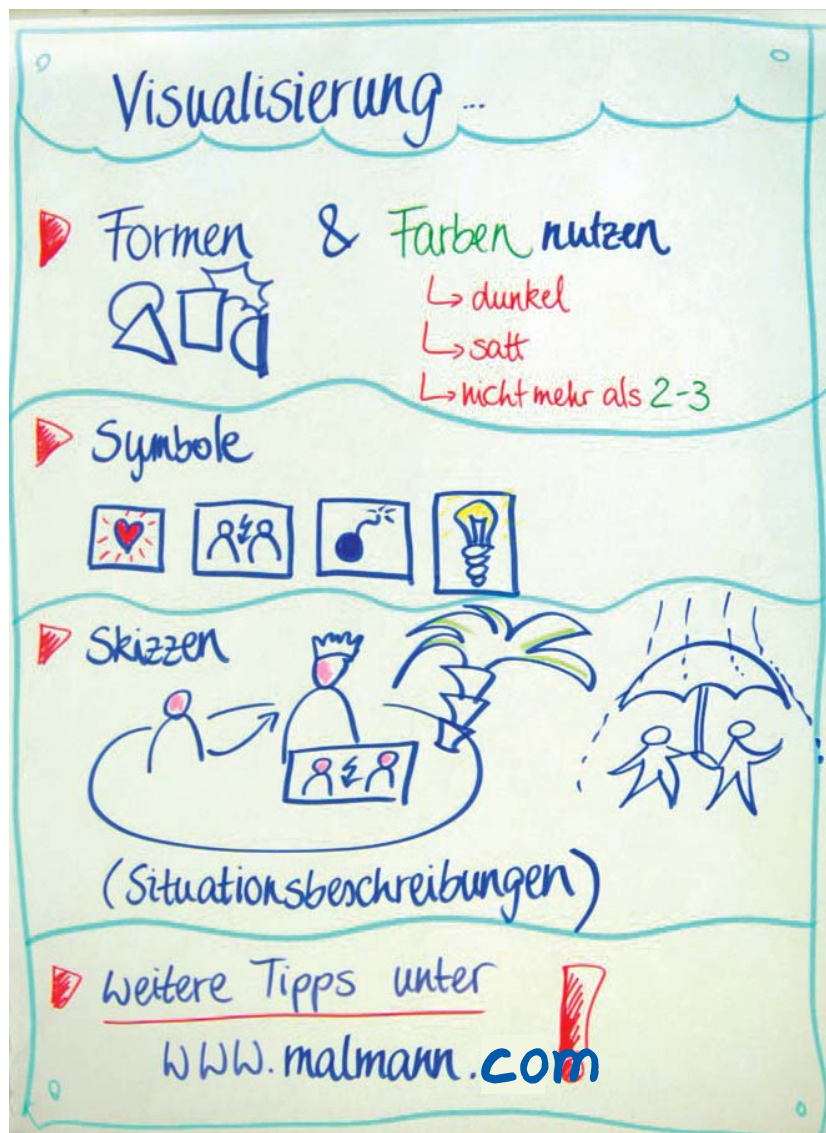 Visualisierung ...
Formen & Farben nutzen
↳ dunkel
↳ satt
↳ nicht mehr als 2-3
Symbole
Skizzen
(Situationsbeschreibungen)
weitere Tipps unter !
www.malmann.com